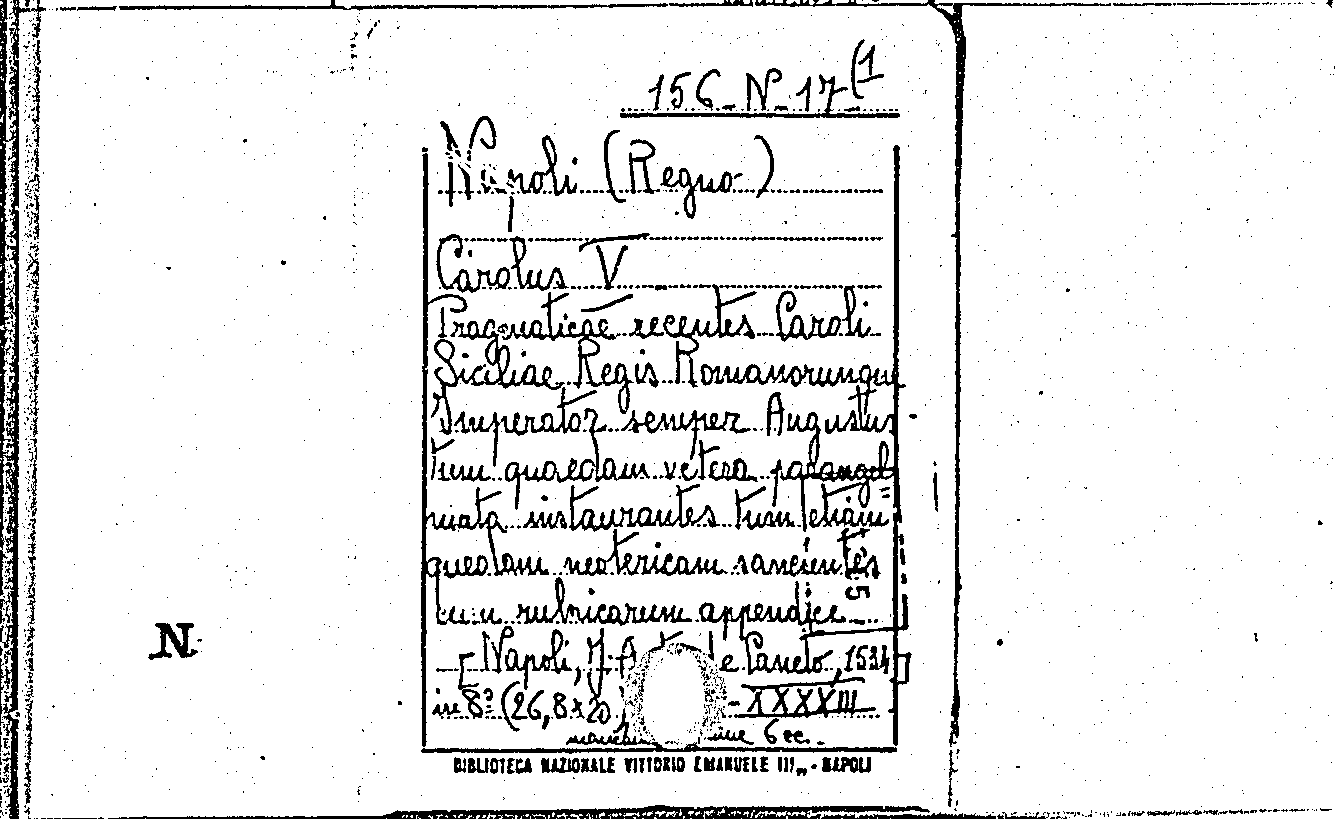 156 N 17 (1
Napoli (Regno)
Carolus V
Pragmaticae recentes Caroli
Siciliae Regis Romanorunque
Imperator semper Augustus
tum quaedam vetera parangel=
mata instaurantes tum etiam
quedam neotericam sancientes
cum rubricarum appendice
[Napoli, J. A de Caneto, 1534]
in 8º (26,8x20) - XXXXIII
6 cc.
N
BIBLIOTECA NAZIONALE VITTORIO EMANUELE III„ - NAPOLI